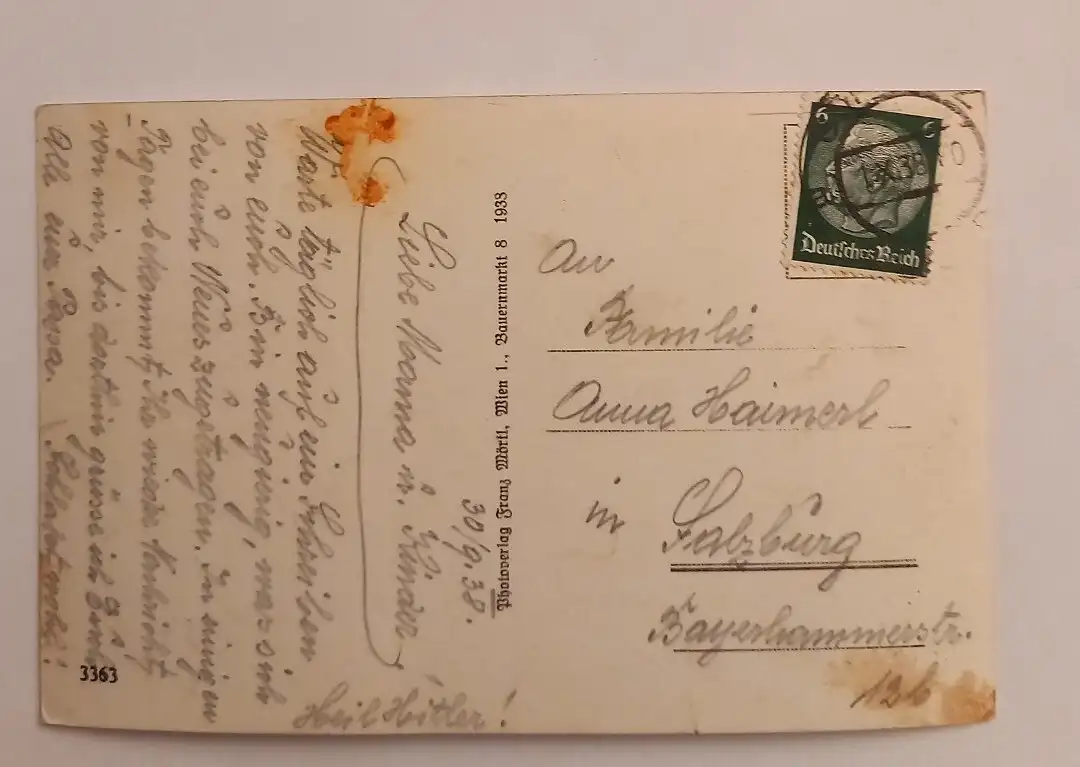 30/9.38.
Liebe Mamma u. Kinder!
Warte täglich auf ein Schreiben
von euch. Bin neugirig, was sich
bei euch Neues zugetragen. In einigen
Tagen bekommt ihr wieder Nachricht
von mir, bis dorthin grüsse ich Euch
Alle euer Papa.
Heil Hitler!
Photoverlag Franz Mörtl, Wien 1., Bauernmarkt 8 1933
3363
6 6
Deutsches Reich
An
Familie
Anna Haimerl
in Salzburg
Bayerhammerstr.
12b